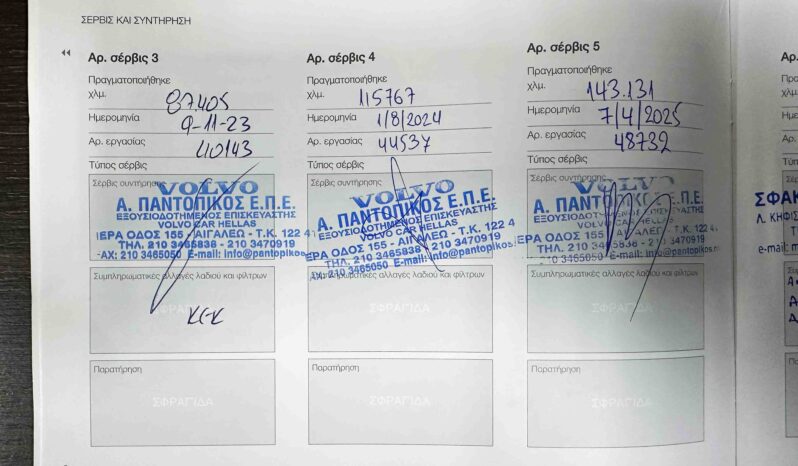 ΣΕΡΒΙΣ ΚΑΙ ΣΥΝΤΗΡΗΣΗ
Αρ. σέρβις 3
Πραγματοποιήθηκε
χλμ. 87.405
Ημερομηνία 9-11-23
Αρ. εργασίας 40143
Τύπος σέρβις
Σέρβις συντήρησης
VOLVO
Α. ΠΑΝΤΟΠΙΚΟΣ Ε.Π.Ε.
ΕΞΟΥΣΙΟΔΟΤΗΜΕΝΟΣ ΕΠΙΣΚΕΥΑΣΤΗΣ
VOLVO CAR HELLAS
ΙΕΡΑ ΟΔΟΣ 155 - ΑΙΓΑΛΕΩ - Τ.Κ. 122 4
ΤΗΛ. 210 3465838 - 210 3470919
FAX: 210 3465050 E-mail: info@pantopikos
Συμπληρωματικές αλλαγές λαδιού και φίλτρων
ΣΦΡΑΓΙΔΑ
Παρατήρηση
ΣΦΡΑΓΙΔΑ
Αρ. σέρβις 4
Πραγματοποιήθηκε
χλμ. 115767
Ημερομηνία 1/8/2024
Αρ. εργασίας 44537
Τύπος σέρβις
Σέρβις συντήρησης
VOLVO
Α. ΠΑΝΤΟΠΙΚΟΣ Ε.Π.Ε.
ΕΞΟΥΣΙΟΔΟΤΗΜΕΝΟΣ ΕΠΙΣΚΕΥΑΣΤΗΣ
VOLVO CAR HELLAS
ΙΕΡΑ ΟΔΟΣ 155 - ΑΙΓΑΛΕΩ - Τ.Κ. 122 4
ΤΗΛ. 210 3465838 - 210 3470919
FAX: 210 3465050 E-mail: info@pantopikos.
Συμπληρωματικές αλλαγές λαδιού και φίλτρων
ΣΦΡΑΓΙΔΑ
Παρατήρηση
ΣΦΡΑΓΙΔΑ
Αρ. σέρβις 5
Πραγματοποιήθηκε
χλμ. 143.131
Ημερομηνία 7/4/2025
Αρ. εργασίας 48732
Τύπος σέρβις
Σέρβις συντήρησης
VOLVO
Α. ΠΑΝΤΟΠΙΚΟΣ Ε.Π.Ε.
ΕΞΟΥΣΙΟΔΟΤΗΜΕΝΟΣ ΕΠΙΣΚΕΥΑΣΤΗΣ
VOLVO CAR HELLAS
ΙΕΡΑ ΟΔΟΣ 155 - ΑΙΓΑΛΕΩ - Τ.Κ. 122
ΤΗΛ. 210 3465838 - 210 347
210 3465050 E-mail: info@pantopikos
Συμπληρωματικές αλλαγές λαδιού και φίλτρων
ΣΦΡΑΓΙΔΑ
Παρατήρηση
ΣΦΡΑΓΙΔΑ